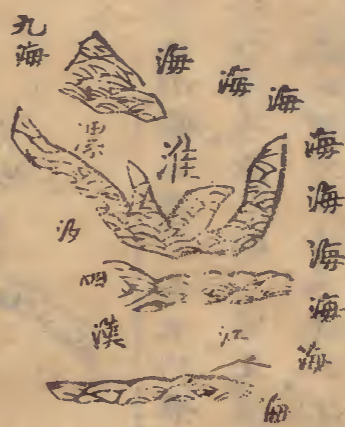 九海
海
海
海
海
海
海
海
海
海
漯
淮
漢
江